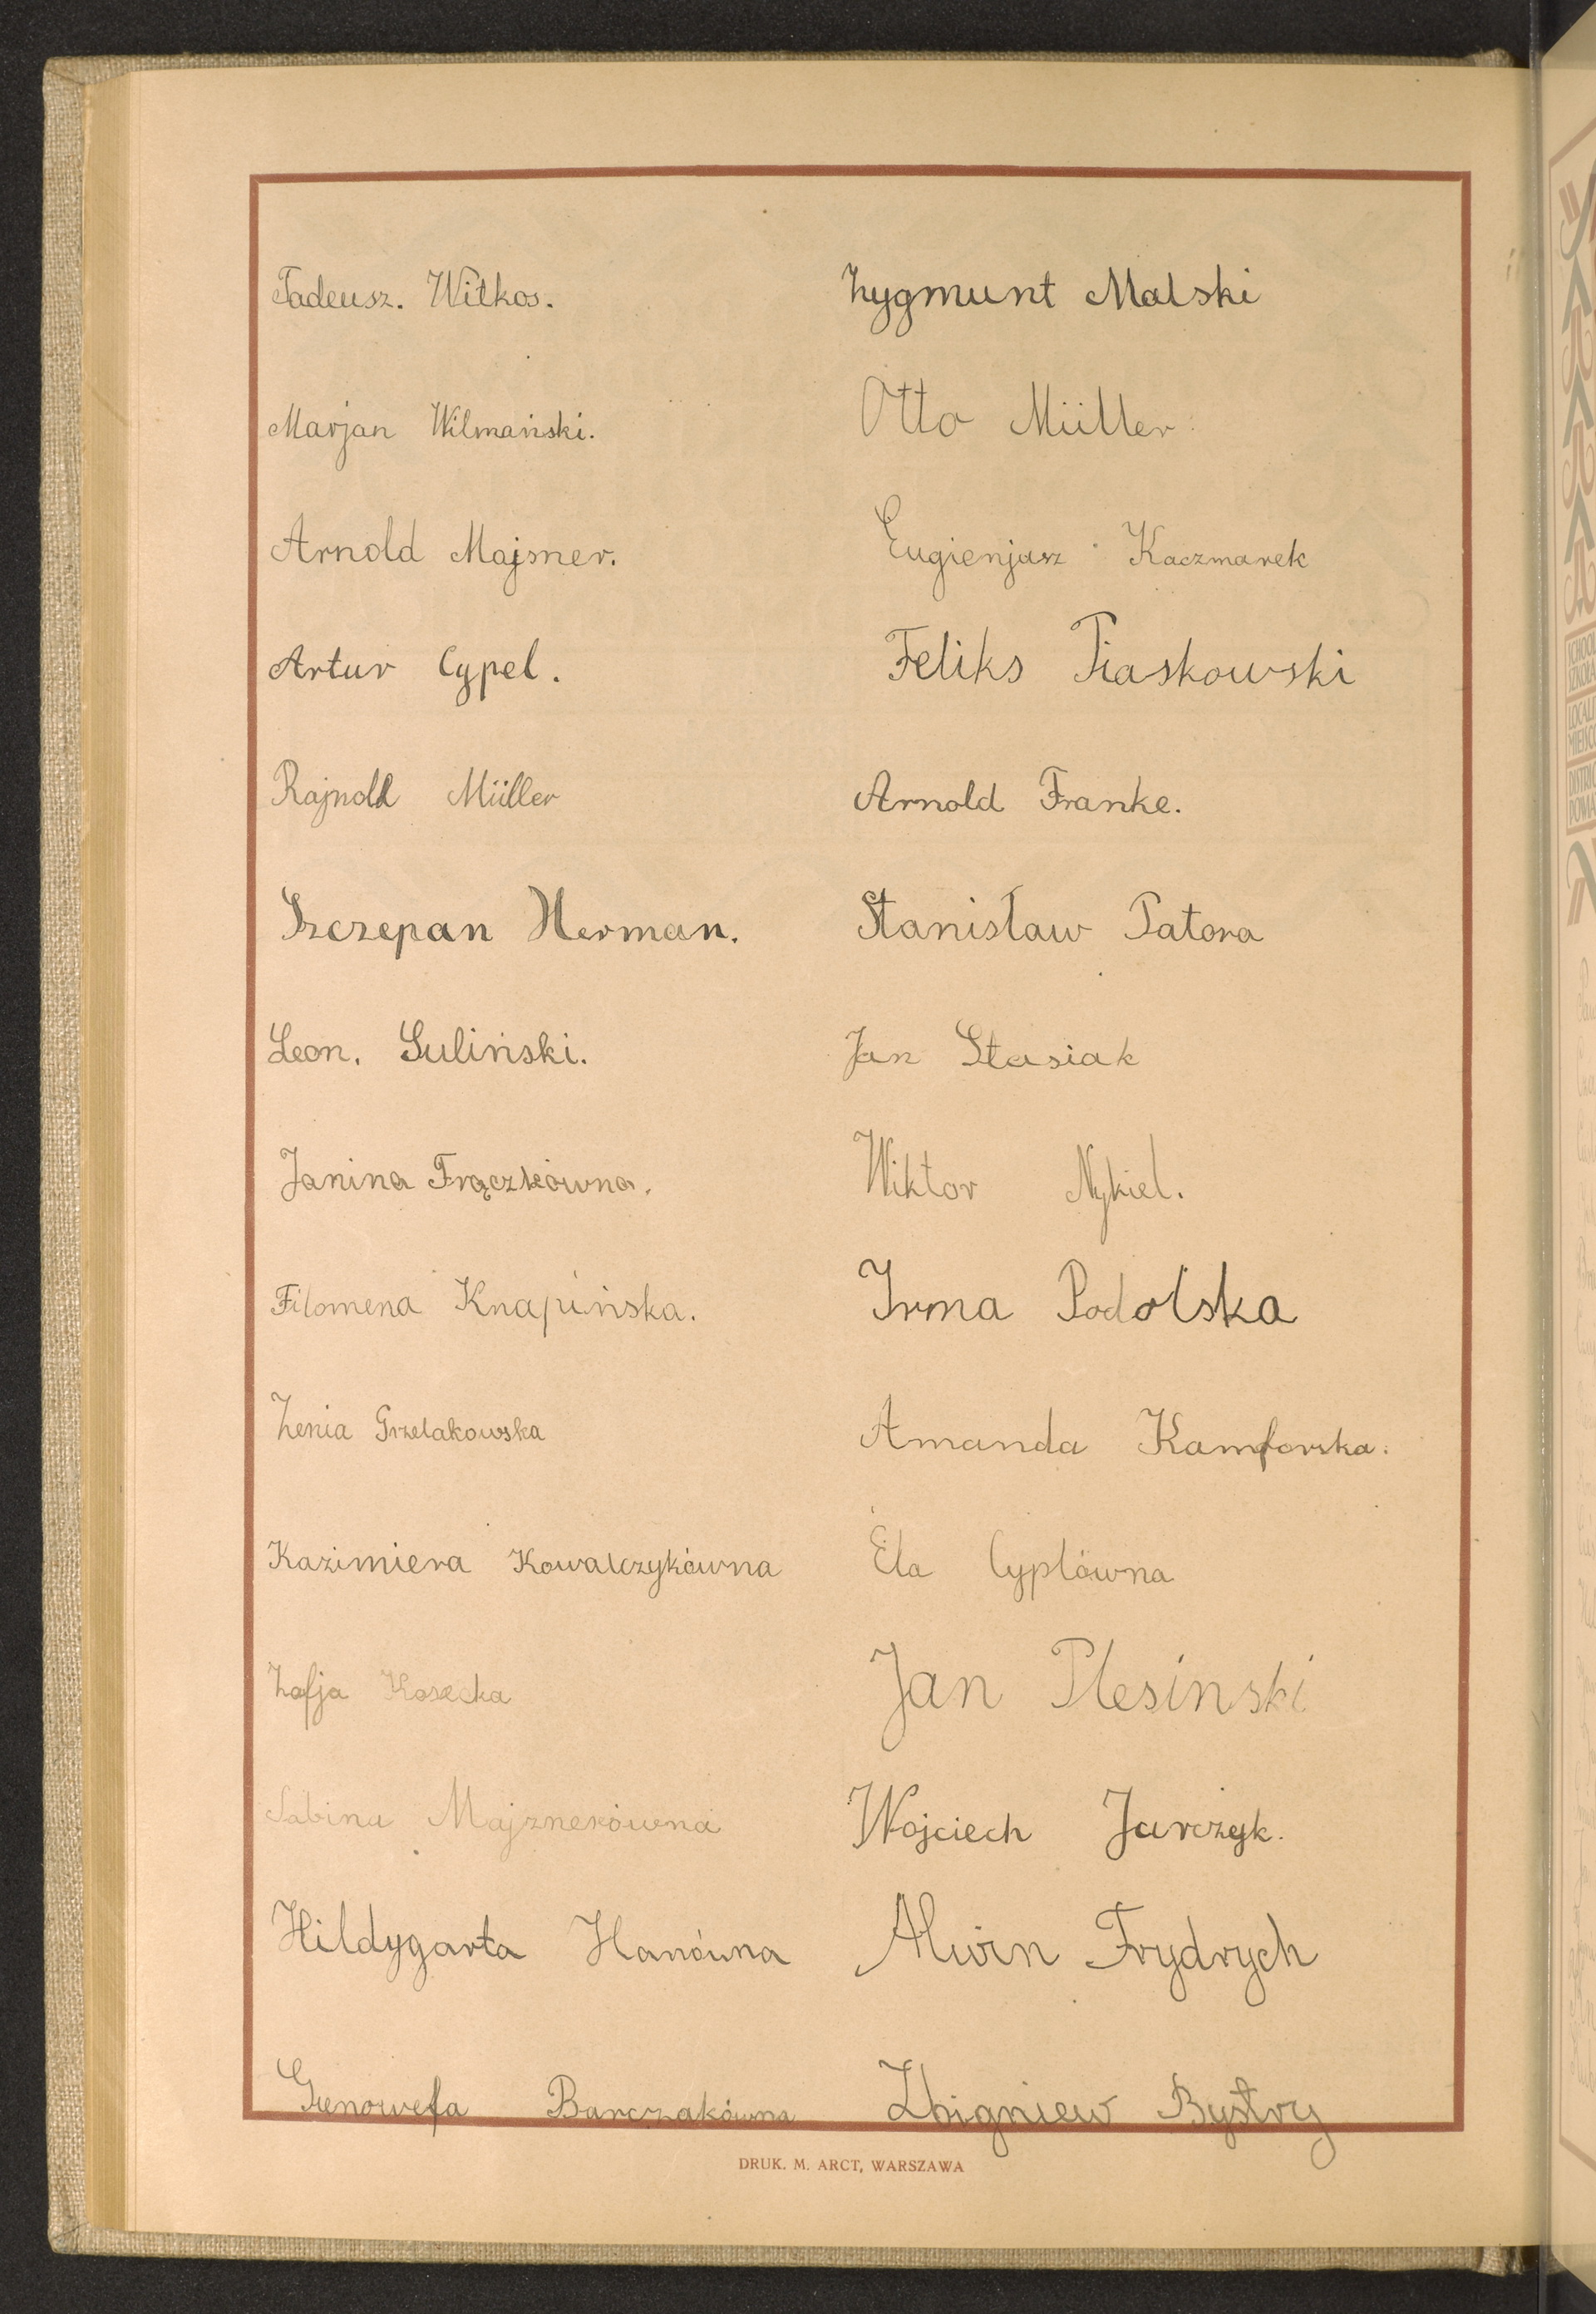 Tadeusz. Witkos.
Marjan Wilmański.
Arnold Majsner.
Artur Cypel.
Rajnold Müller
Szczepan Herman.
Leon. Suliński.
Janina Frączkówna.
Filomena Knapińska.
Zenia Grzelakowska
Kazimiera Kowalczykówna
Zofja Kosecka
Sabina Majznerówna
Hildygarta Hanówna
Genowefa Barczakówna
Zygmunt Malski
Otto Müller.
Eugienjusz Kaczmarek
Feliks Piaskowski
Arnold Franke.
Stanisław Patora
Jan Stasiak
Wiktor Nykiel.
Irma Podolska
Amanda Kamforska.
Ela Cyplówna
Jan Plesinski
Wojciech Jurczyk.
Alwin Frydrych
Zbigniew Bystry
DRUK. M. ARCT, WARSZAWA